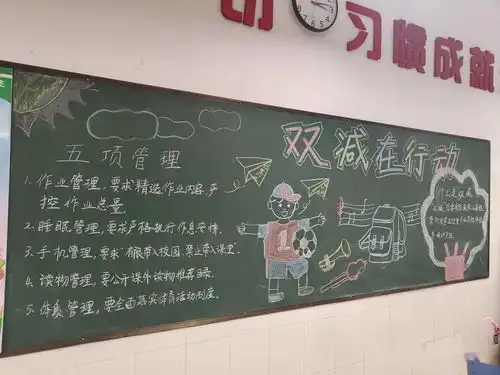 习惯成就
双减在行动
五项管理
1. 作业管理,要求精选作业内容,严
控作业总量.
2. 睡眠管理,要求严格执行作息安排.
3. 手机管理,要求有限带入校园,禁止带入课堂.
4. 读物管理,要公开课外读物推荐目录.
5. 体质管理,要全面落实体育活动制度.
什么是双减
1